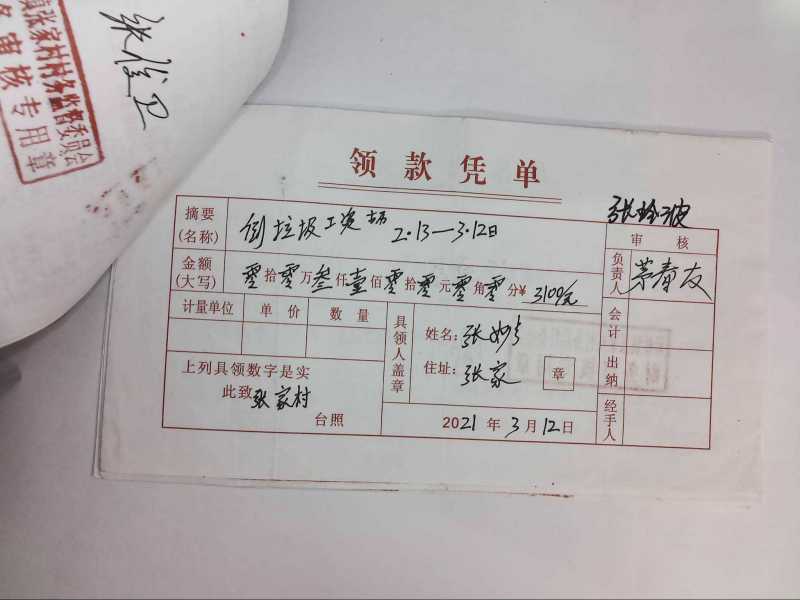 镇张家村村务监督委员会
务审核专用章
张俊卫
领款凭单
张玲波
摘要(名称) 倒垃圾工资 2.13—3.12日
审核
金额(大写) 零拾零万叁仟壹佰零拾零元零角零分¥3100元
负责人 茅春友
计量单位 单价 数量
具领人盖章
姓名:张妙
会计
住址:张家
章
出纳
上列具领数字是实
此致张家村
台照
2021年3月12日
经手人